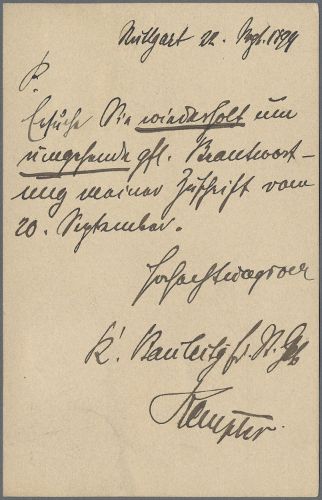 Stuttgart 22. Sept. 1899
P.
Ersuche Sie wiederholt um
umgehende gfl. Beantwort-
ung meiner Zuschrift vom
20. September.
Hochachtungsvoll
K. Bauleitg
Kempter.